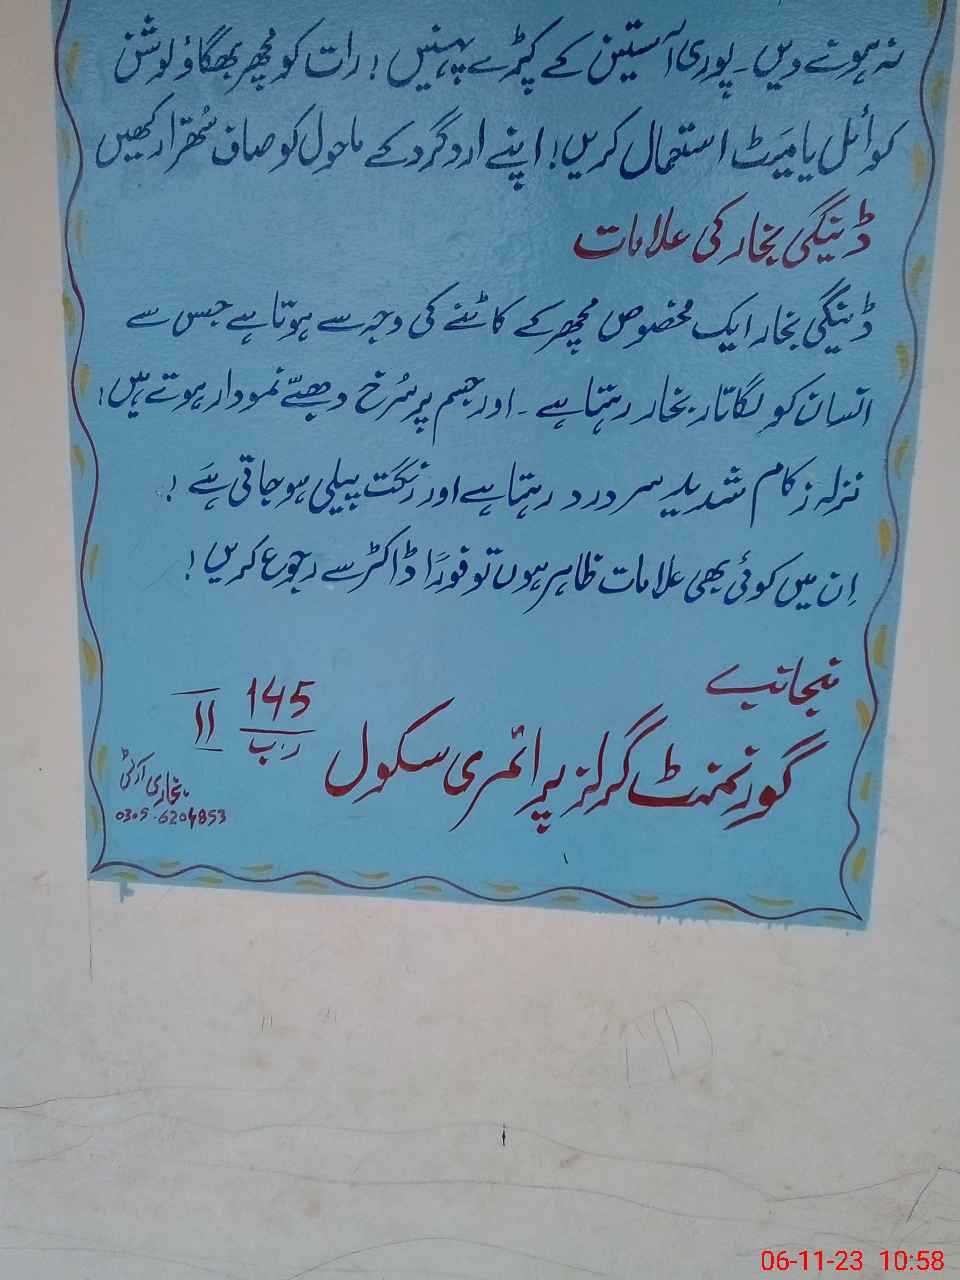 نہ ہونے دیں۔ پوری آستین کے کپڑے پہنیں! رات کو مچھر بھگاؤ لوشن
کوائل یا میَٹ استعمال کریں! اپنے اردگرد کے ماحول کو صاف سُتھرا رکھیں
ڈینگی بخار کی علامات
ڈینگی بخار ایک مخصوص مچھر کے کاٹنے کی وجہ سے ہوتا ہے جس سے
انسان کو لگاتار بخار رہتا ہے ۔ اور جسم پر سُرخ دھبّے نمودار ہوتے ہیں!
نزلہ زکام شدید سر درد رہتا ہے اور رنگت پیلی ہو جاتی ہَے !
اِن میں کوئی بھی علامات ظاہر ہوں تو فوراً ڈاکٹر سے رجوع کریں !
منجانب
گورنمنٹ گرلز پرائمری سکول 145 ر ب II
بخاری آرٹ
0305-6204853
06-11-23 10:58